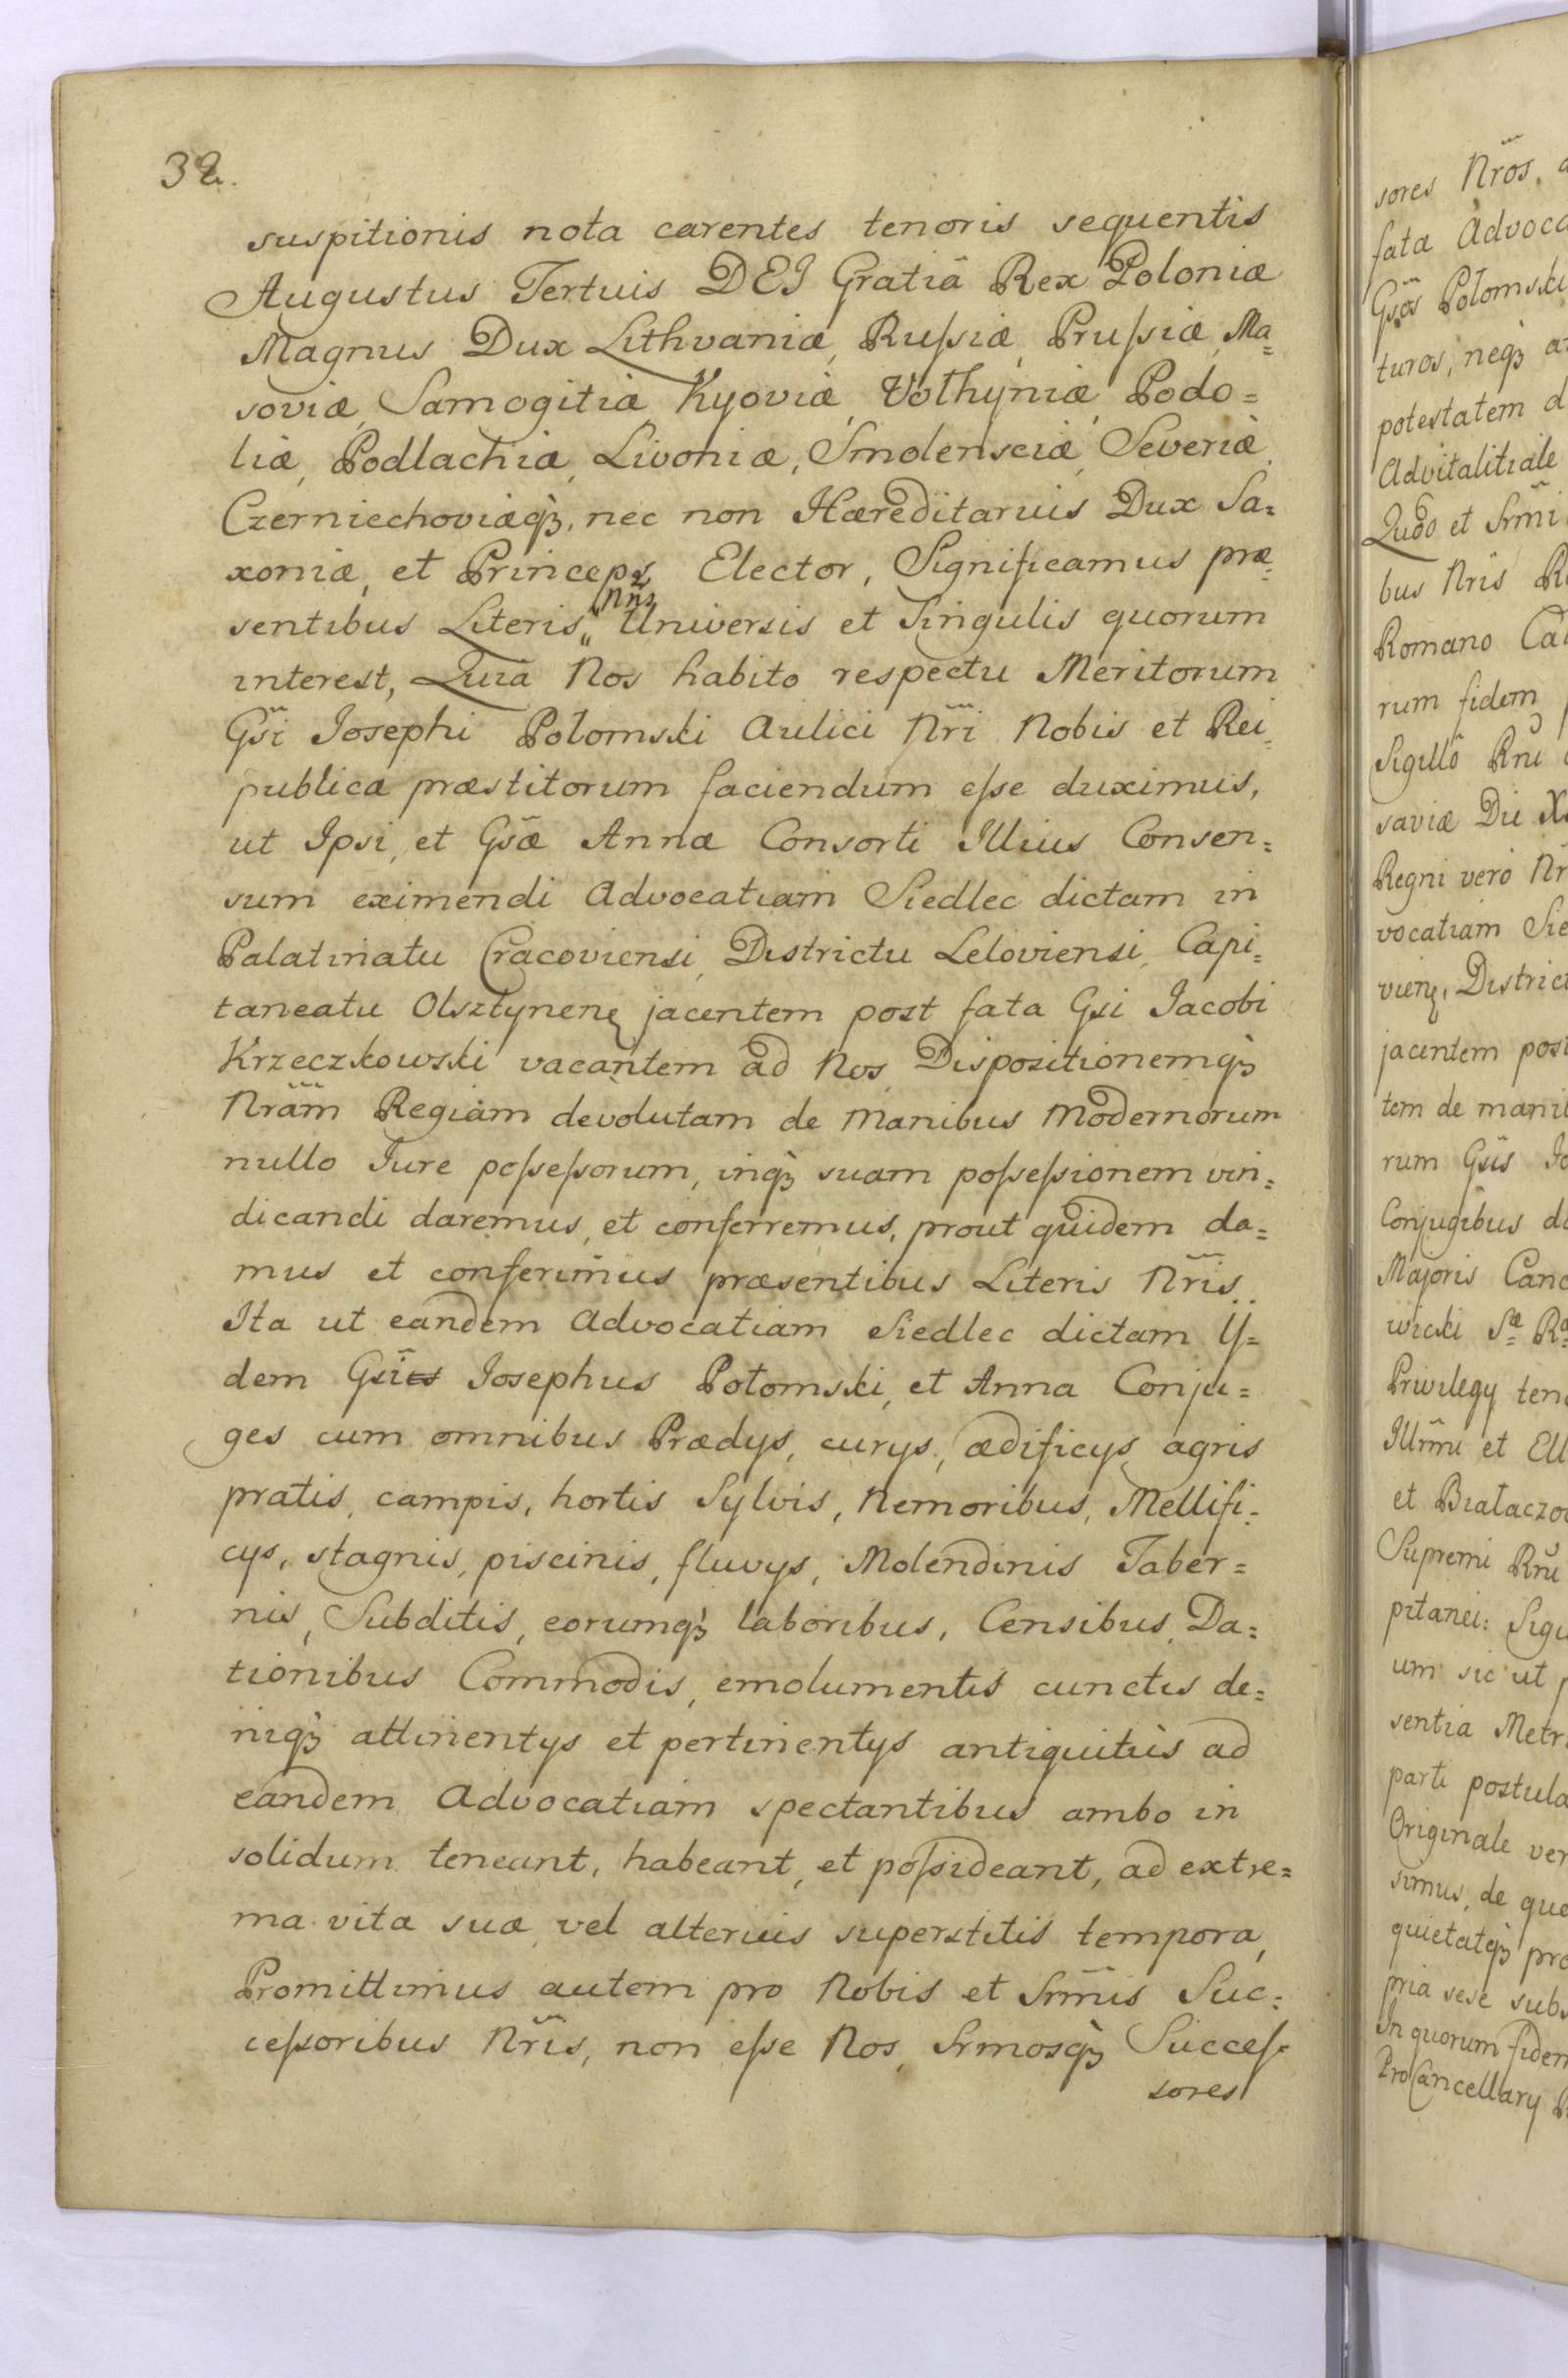 32.
suspitionis nota carentes tenoris sequentis
Augustus Tertuis DEI Gratiâ Rex Poloniæ
Magnus Dux Lithvaniæ, Rußiæ, Prußiæ, Ma=
soviæ, Samogitiæ Kyoviæ, Volhyniæ, Podo=
liæ, Podlachiæ, Livoniæ, Smolensciæ, Severiæ,
Czerniechoviæqꝫ, nec non Hæreditarius Dux Sa=
xoniæ, et Princeps Elector, Significamus præ=
sentibus Literis Nris Universis et Singulis quorum
interest, Quia Nos habito respectu Meritorum
Gsi Josephi Połomski Aulici Nri Nobis et Rei=
publicæ præstitorum faciendum eße duximus,
ut Ipsi, et Gsæ Annæ Consorti Illius Consen=
sum eximendi Advocatiam Siedlec dictam in
Palatinatu Cracoviensi, Districtu Leloviensi, Capi=
taneatu Olsztynenę jacentem post fata Gsi Jacobi
Krzeczkowski vacantem ad Nos, Dispositionemqꝫ
Nram Regiam devolutam de Manibus Modernorum
nullo Jure poßeßorum, inqꝫ suam poßeßionem vin=
dicandi daremus, et conferremus, prout quidem da=
mus et conferimus præsentibus Literis Nris.
Ita ut eandem Advocatiam Siedlec dictam Ij=
dem Gsi Josephus Połomski, et Anna Conju=
ges cum omnibus Prædys, curys, ædificys, agris
pratis, campis, hortis Sylvis, Nemoribus, Mellifi=
cys, stagnis, piscinis, fluvys, Molendinis Taber=
nis, Subditis, eorumqꝫ laboribus, Censibus, Da=
tionibus Commodis, emolumentis cunctis de=
niqꝫ attinentys et pertinentys antiquitùs ad
eandem Advocatiam spectantibus ambo in
solidum teneant, habeant, et poßideant, ad extre=
ma vitæ suæ, vel alterius superstitis tempora,
Promittimus autem pro Nobis et Srmis Suc=
ceßoribus Nris, non eße Nos, Srmosqꝫ Succeß=
sores
sores Nros,
fata Advoca
Gsos Połomski
turos, neqꝫ
potestatem d
Advitalitiale
Quod et Srmi
bus Nris
Romano Cat
rum fidem
Sigillô Rni
saviæ Die
Regni verò Nr
vocatiam Sie
vienę, District
jacentem post
tem de mani
rum Gsis Jo
Conjugibus d
Majoris Canc
wicki
Privilegy ten
Illrmi et Ell
et Białaczo
Supremi Rni
pitanei: Sigi
um sic ut
sentia Metr
parti postula
Originale ver
simus, de quo
quietatqꝫ pro
pria sese subs
In quorum fidem
ProCancellary